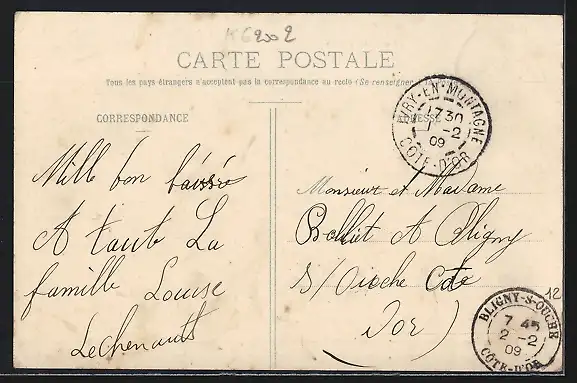 K62002
CARTE POSTALE
Tous les pays étrangers n'acceptent pas la correspondance au recto (Se renseigner
CORRESPONDANCE
ADRESSE
IVRY-EN-MONTAGNE
1730
1 - 2
09
COTE-D'OR
Mille bon
A taute La
famille Louise
Lechenault
Monsieur et Madame
A Bligny
S/Ouche Cote
Dor)
12
BLIGNY-S-OUCHE
7 45
2 - 2
09
COTE-D'OR